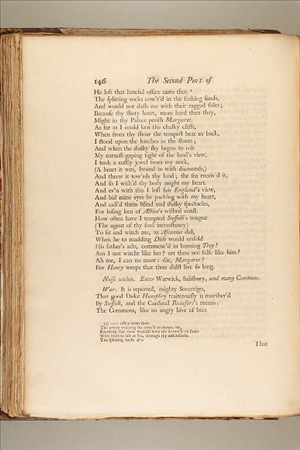 146 The Second Part of
He left that hateful office unto thee.
The splitting rocks cow'r'd in the sinking sands,
And would not dash me with their ragged sides;
Because thy flinty heart, more hard than they,
Might in thy Palace perish Margaret.
As far as I could ken the chalky cliffs,
When from thy shoar the tempest beat us back,
I stood upon the hatches in the storm;
And when the dusky sky began to rob
My earnest-gaping sight of thy land's view,
I took a costly jewel from my neck,
(A heart it was, bound in with diamonds,)
And threw it tow'rds thy land; the sea receiv'd it,
And so I wish'd thy body might my heart.
And ev'n with this I lost fair England's view,
And bid mine eyes be packing with my heart,
And call'd them blind and dusky spectacles,
For losing ken of Albion's wished coast.
How often have I tempted Suffolk's tongue
(The agent of thy foul inconstancy)
To sit and witch me, as Ascanius did,
When he to madding Dido would unfold
His father's acts, commenc'd in burning Troy?
Am I not witcht like her? art thou not false like him?
Ah me, I can no more: die, Margaret!
For Henry weeps that thou didst live so long.
Noise within. Enter Warwick, Salisbury, and many Commons.
War. It is reported, mighty Sovereign,
That good Duke Humphry traiterously is murther'd
By Suffolk, and the Cardinal Beaufort's means:
The Commons, like an angry hive of bees
(a) office unto thee.
The pretty vaulting sea refus'd to drown me,
Knowing that thou wouldst have me drown'd on shore
With tears as salt as sea, through thy unkindness.
The splitting rocks &c.
That